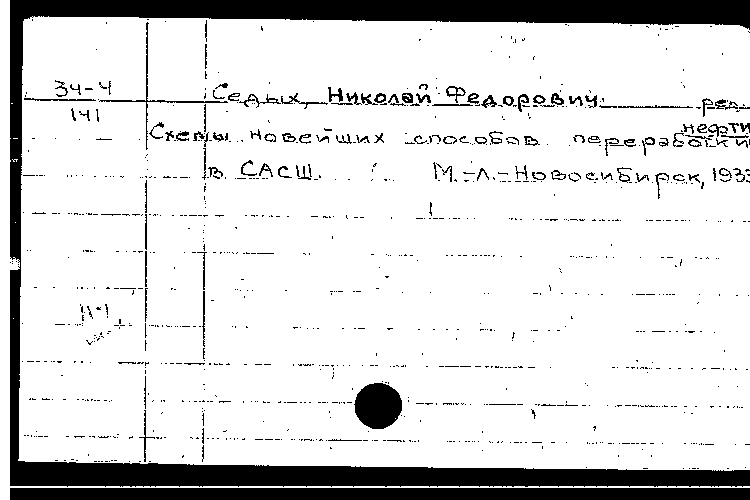 34-4
Седых, Николай Федорович. ред.
141
нефти
Схемы новейших способов переработки
в САСШ. М.-Л.-Новосибирск, 1933